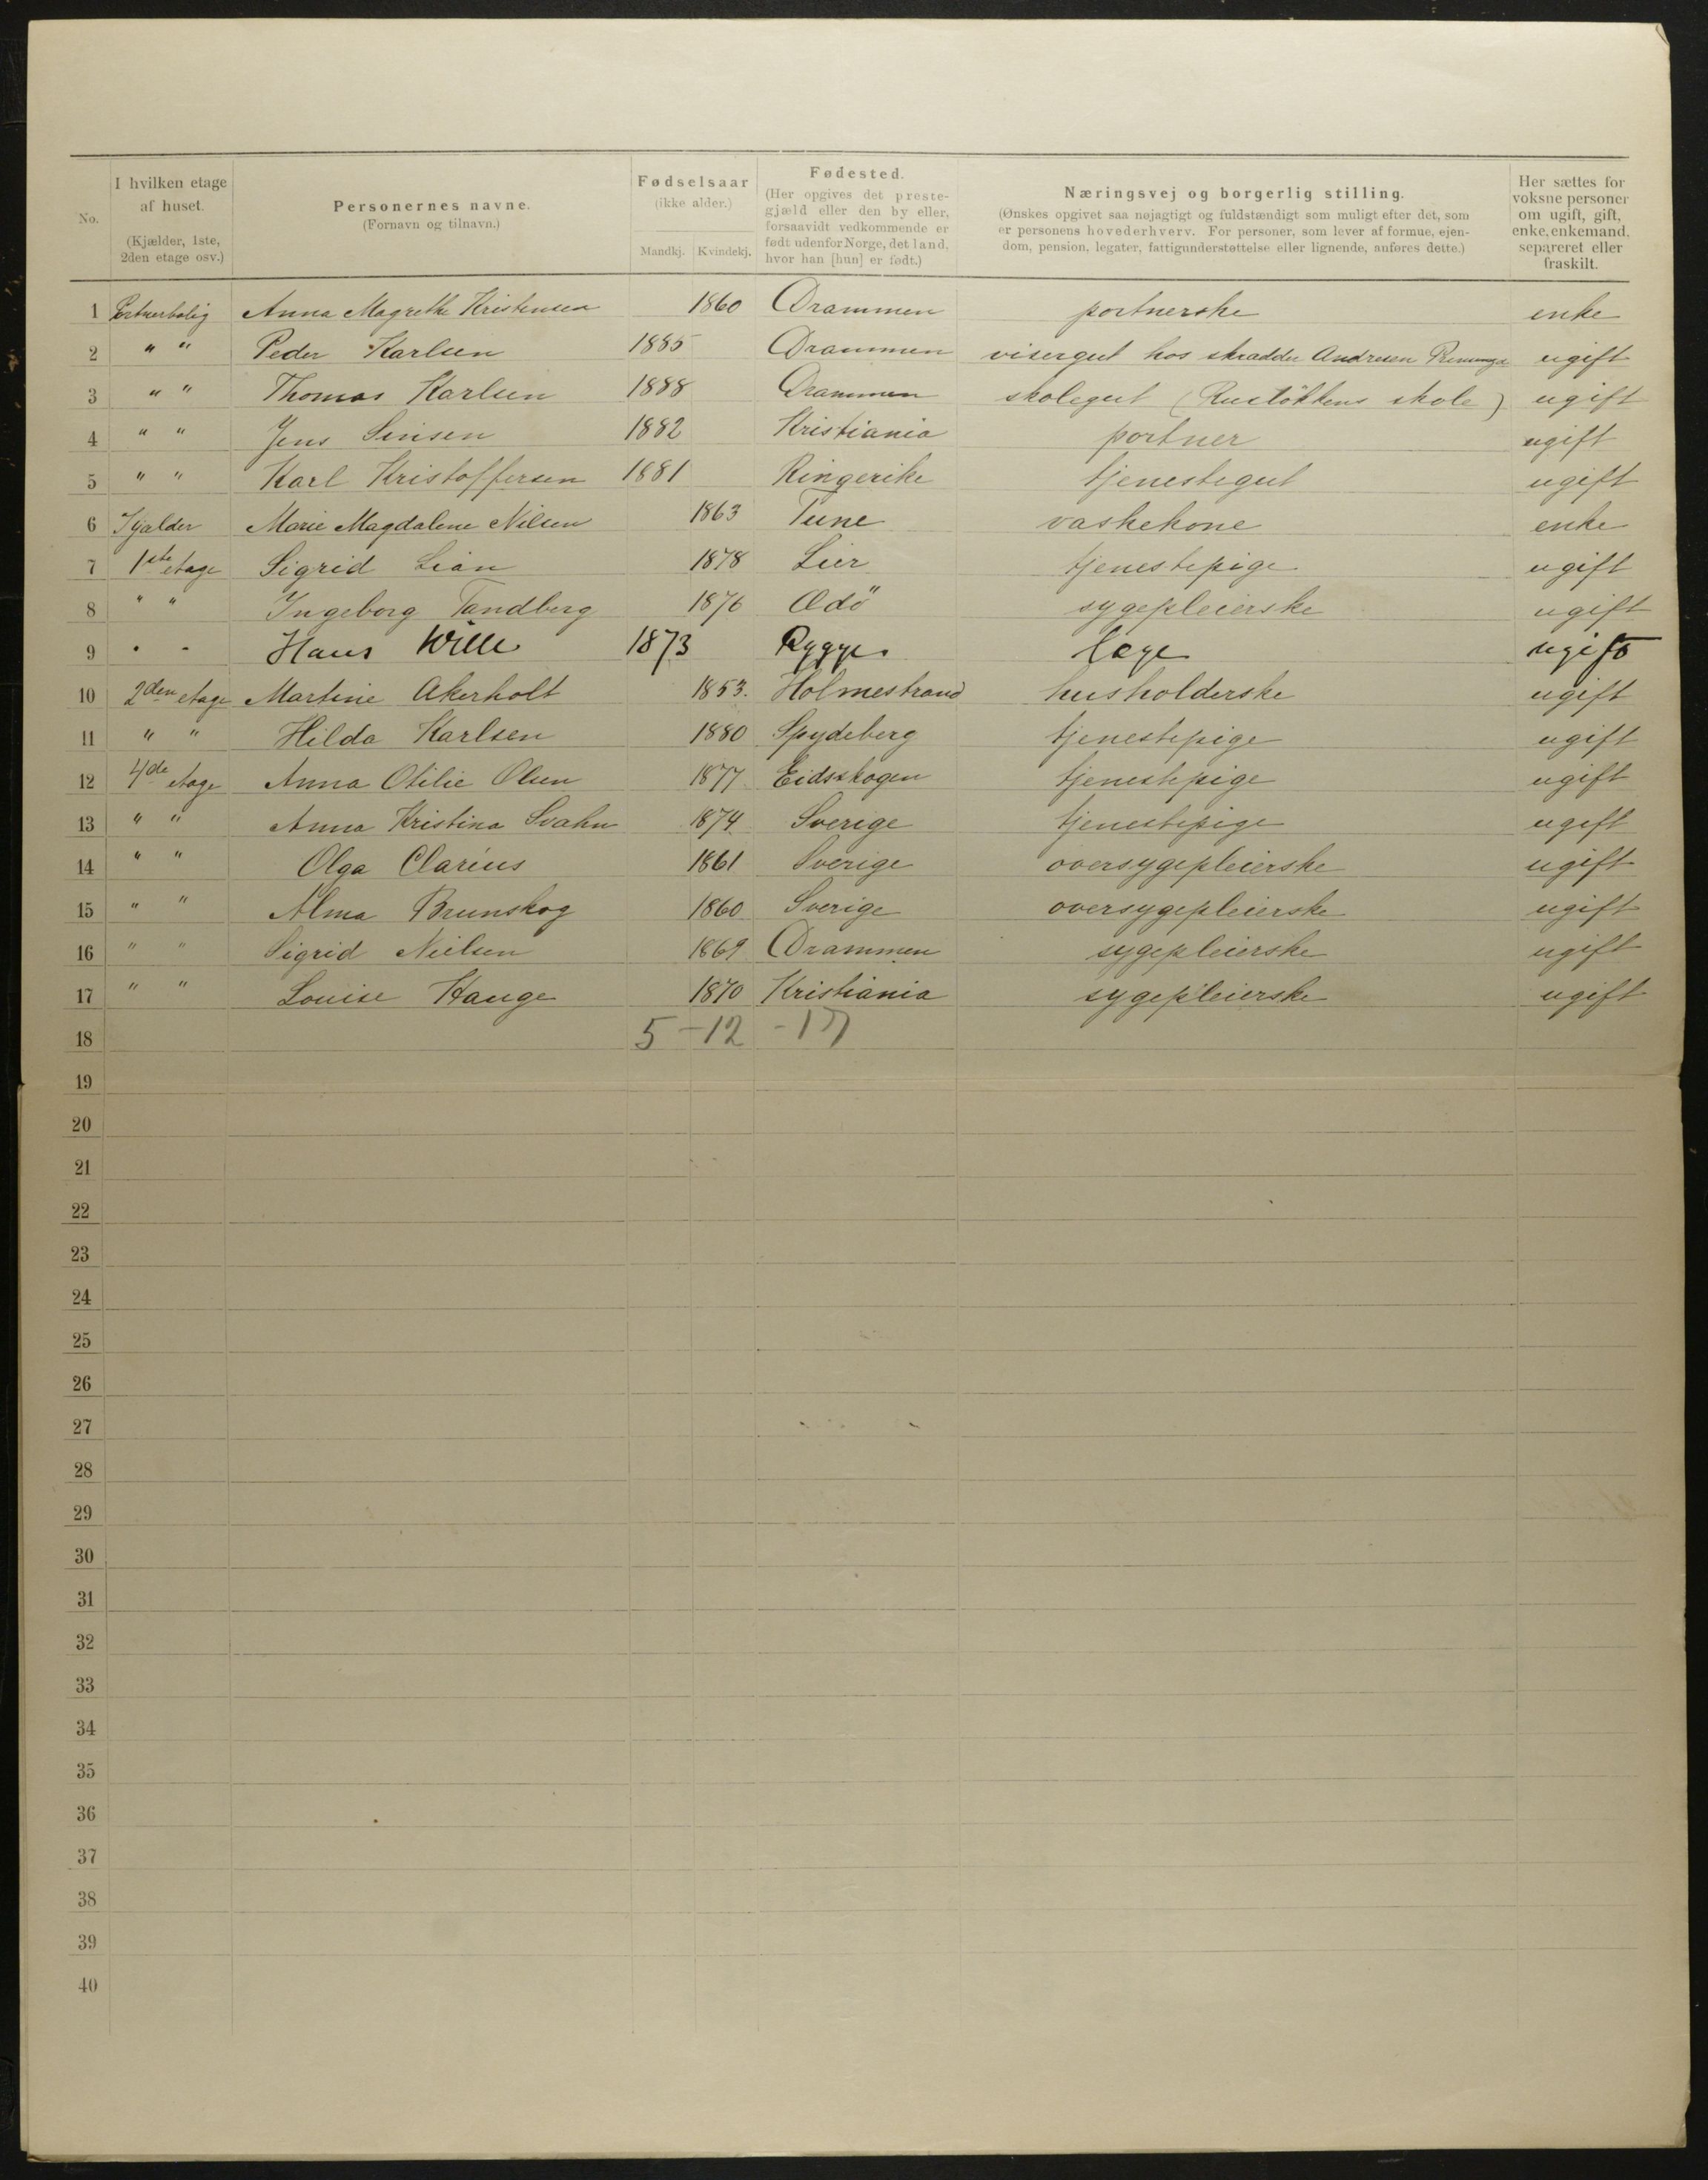 No. I hvilken etage af huset. (Kjælder, 1ste, 2den etage osv.) Personernes navne. (Fornavn og tilnavn.) Fødselsaar (ikke alder.) Mandkj. Kvindekj. Fødested. (Her opgives det prestegjæld eller den by eller, forsaavidt vedkommende er født udenfor Norge, det land, hvor han [hun] er født.) Næringsvej og borgerlig stilling. (Ønskes opgivet saa nøjagtigt og fuldstændigt som muligt efter det, som er personens hovederhverv. For personer, som lever af formue, ejendom, pension, legater, fattigunderstøttelse eller lignende, anføres dette.) Her sættes for voksne personer om ugift, gift, enke, enkemand, separeret eller fraskilt.
1 Portnerbolig Anna Magrethe Kristensen 1860 Drammen portnerske enke
2 " " Peder Karlsen 1885 Drammen visergut hos skrædder Andresen ugift
3 " " Thomas Karlsen 1888 Drammen skolegut (Rusløkkens skole) ugift
4 " " Jens Sinsen 1882 Kristiania portner ugift
5 " " Karl Kristoffersen 1881 Ringerike tjenestegut ugift
6 Kjælder Marie Magdalene Nilsen 1863 Tune vaskekone enke
7 1ste etage Sigrid Lian 1878 Lier tjenestepige ugift
8 " " Ingeborg Tandberg 1876 Ødö sygepleierske ugift
9 " " Hans Wille 1873 Rygge læge ugift
10 2den etage Martine Akerholt 1853. Holmestrand husholderske ugift
11 " " Hilda Karlsen 1880 Spydeberg tjenestepige ugift
12 4de etage Anna Otilie Olsen 1877 Eidsskogen tjenestepige ugift
13 " " Anna Kristina Svahn 1874 Sverige tjenestepige ugift
14 " " Olga Claréus 1861 Sverige oversygepleierske ugift
15 " " Alma Brunskog 1860 Sverige oversygepleierske ugift
16 " " Sigrid Nielsen 1869 Drammen sygepleierske ugift
17 " " Louise Hauge 1870 Kristiania sygepleierske ugift
18 5 - 12 - 17
19
20
21
22
23
24
25
26
27
28
29
30
31
32
33
34
35
36
37
38
39
40